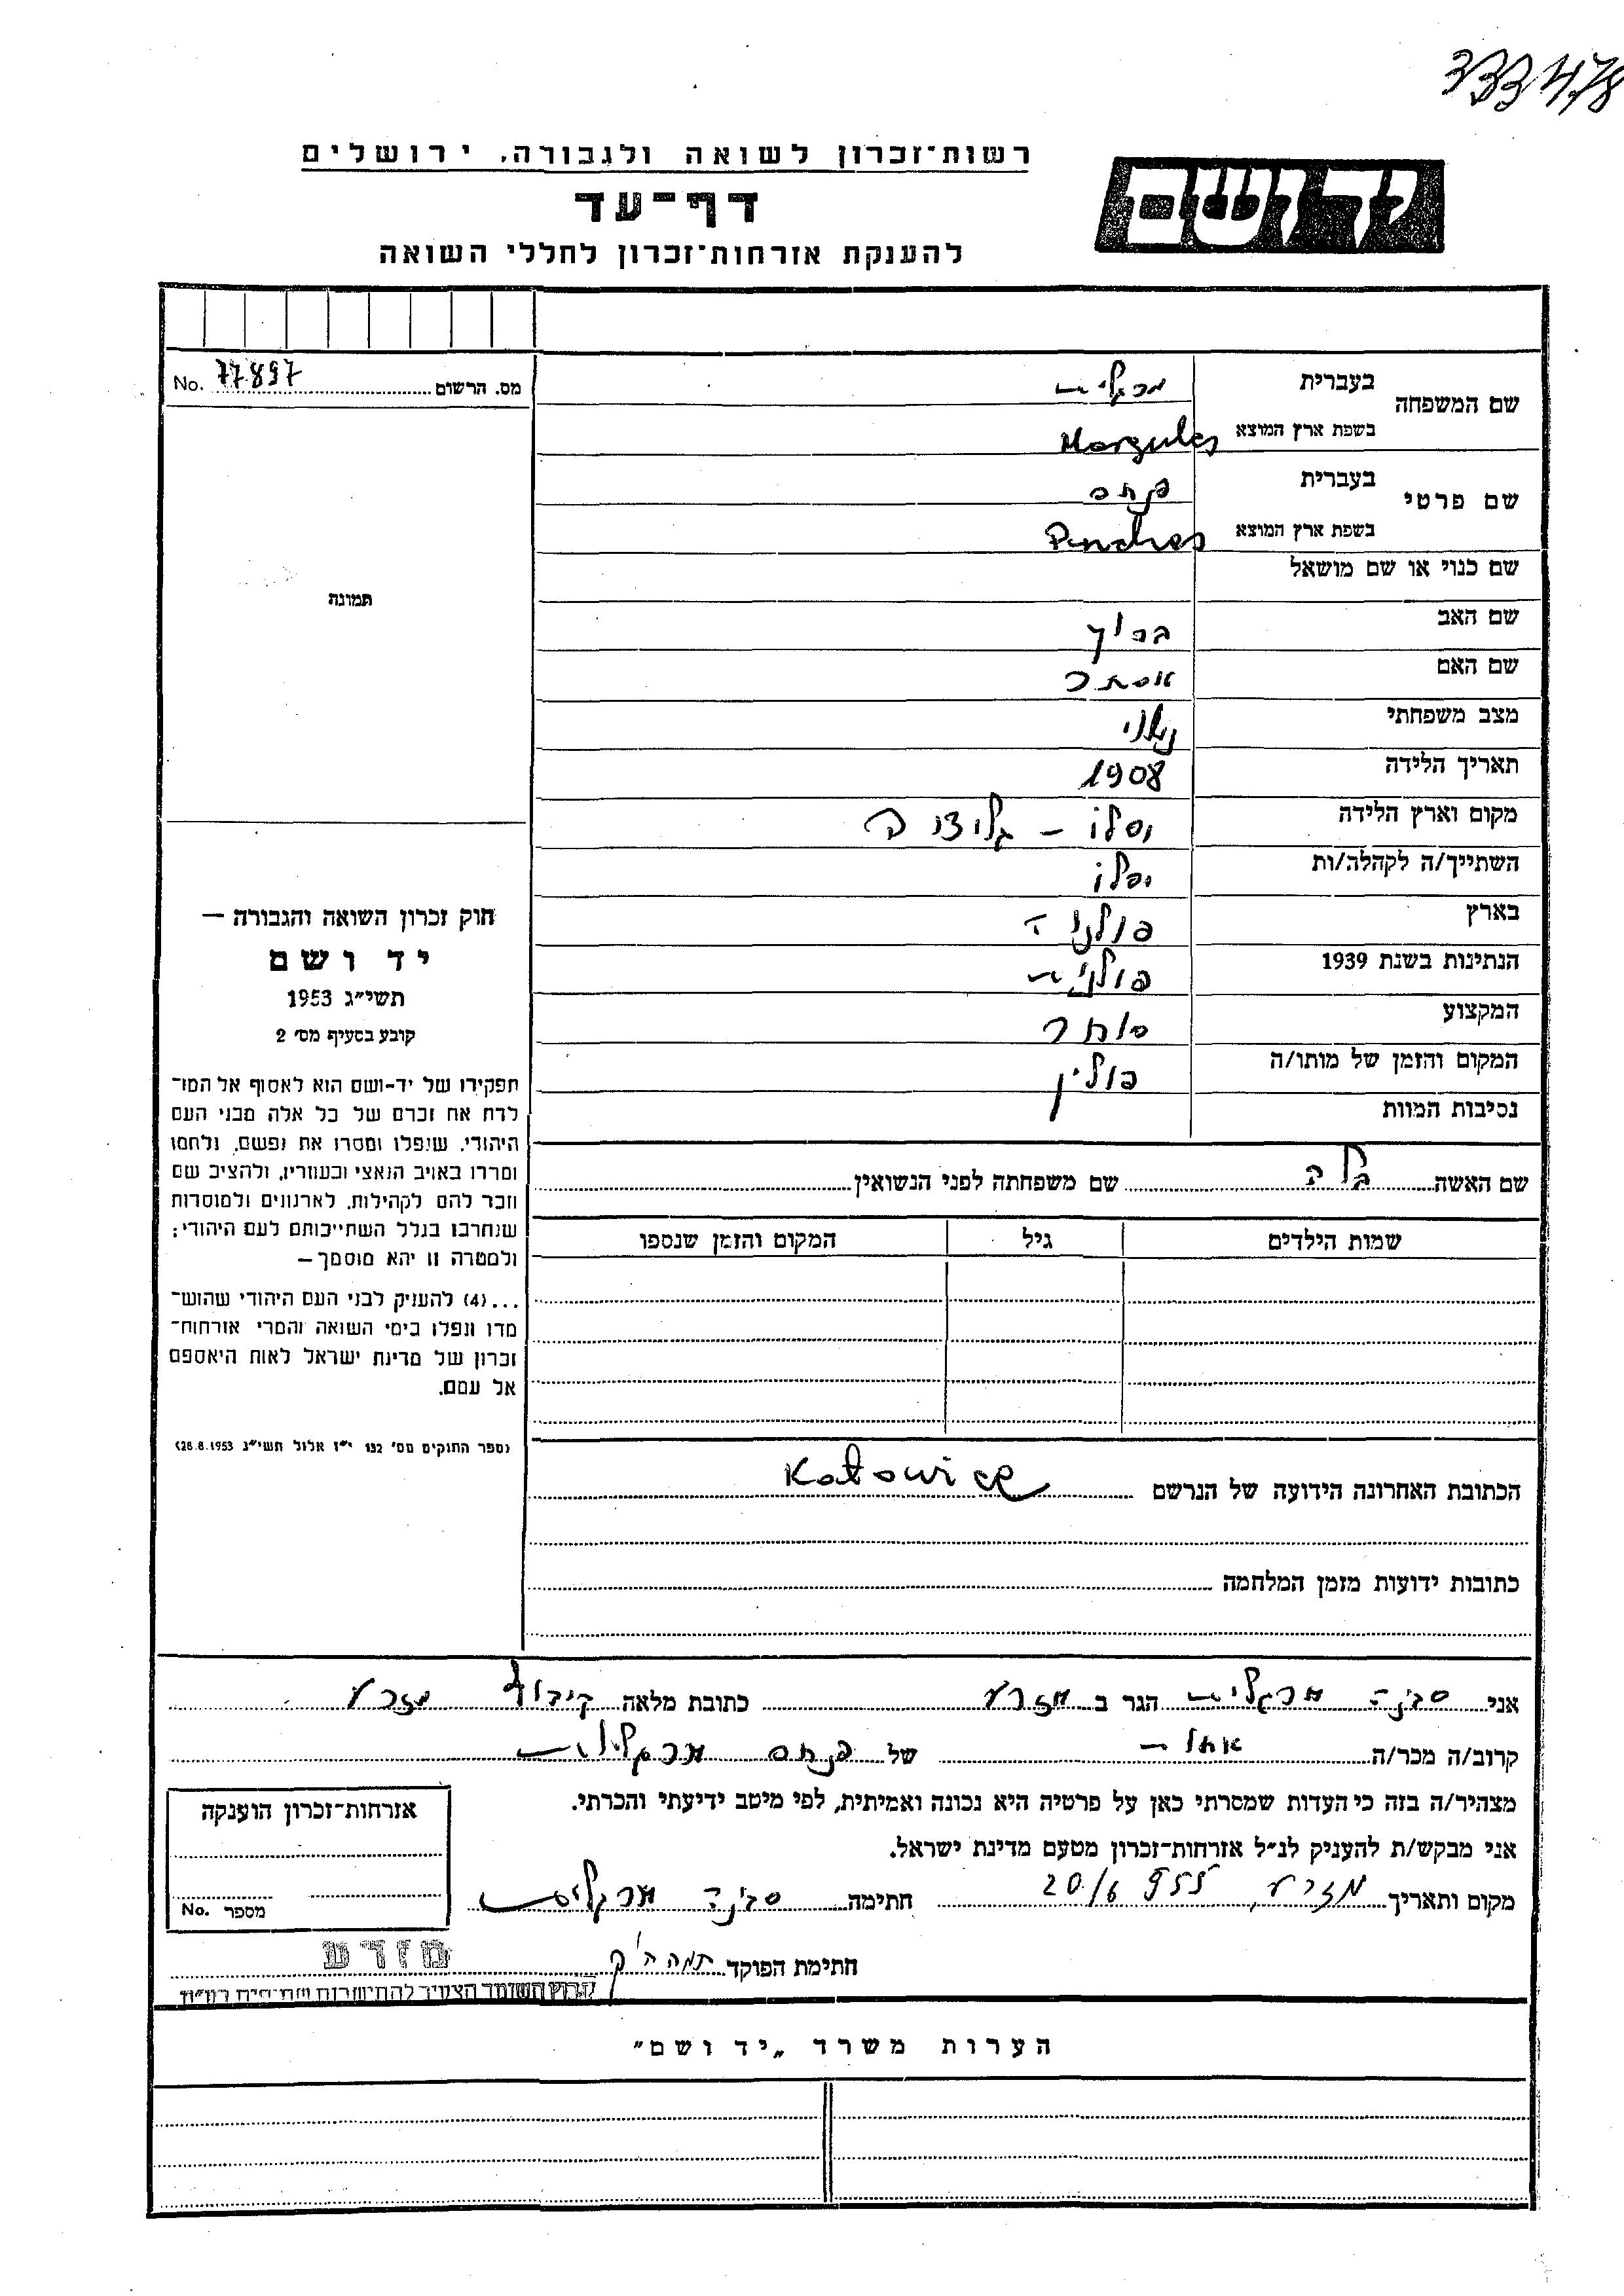 333478
יד ושם
רשות־זכרון לשואה ולגבורה, ירושלים
דף־עד
להענקת אזרחות־זכרון לחללי השואה
מס. הרשום 77897 No.
שם המשפחה
בעברית מרגליות
בשפת ארץ המוצא Margules
שם פרטי
בעברית פנחס
בשפת ארץ המוצא Pinches
שם כנוי או שם מושאל
שם האב ברוך
שם האם אסתר
מצב משפחתי נשוי
תאריך הלידה 1908
מקום וארץ הלידה יסלו – גליציה
השתייך/ה לקהלה/ות יסלו
בארץ פולניה
הנתינות בשנת 1939 פולנית
המקצוע סוחר
המקום והזמן של מותו/ה פולין
נסיבות המוות
תמונה
חוק זכרון השואה והגבורה —
יד ושם
תשי״ג 1953
קובע בסעיף מס׳ 2
תפקידו של יד-ושם הוא לאסוף אל המו־
לדת את זכרם של כל אלה מבני העם
היהודי, שנפלו ומסרו את נפשם, נלחמו
ומרדו באויב הנאצי ובעוזריו, ולהציב שם
וזכר להם לקהילות, לארגונים ולמוסדות
שנחרבו בגלל השתייכותם לעם היהודי;
ולמטרה זו יהא מוסמך —
...(4) להעניק לבני העם היהודי שהוש־
מדו ונפלו בימי השואה והמרי אזרחות־
זכרון של מדינת ישראל לאות היאספם
אל עמם.
(ספר החוקים מס׳ 132 י״ז אלול תשי״ג 28.8.1953)
שם האשה בלה שם משפחתה לפני הנשואין
שמות הילדים גיל המקום והזמן שנספו
הכתובת האחרונה הידועה של הנרשם Katowice
כתובות ידועות מזמן המלחמה
אני מרגליות הגר ב מזרע כתובת מלאה קיבוץ מזרע
קרוב/ה מכר/ה אחות של פנחס מרגליות
מצהיר/ה בזה כי העדות שמסרתי כאן על פרטיה היא נכונה ואמיתית, לפי מיטב ידיעתי והכרתי.
אני מבקש/ת להעניק לנ״ל אזרחות־זכרון מטעם מדינת ישראל.
מקום ותאריך מזרע, 20/6 חתימה מרגליות
חתימת הפוקד
מזרע
קבוץ השומר הצעיר להתישבות שתופית בע״מ
אזרחות־זכרון הוענקה
מספר No.
הערות משרד „יד ושם״